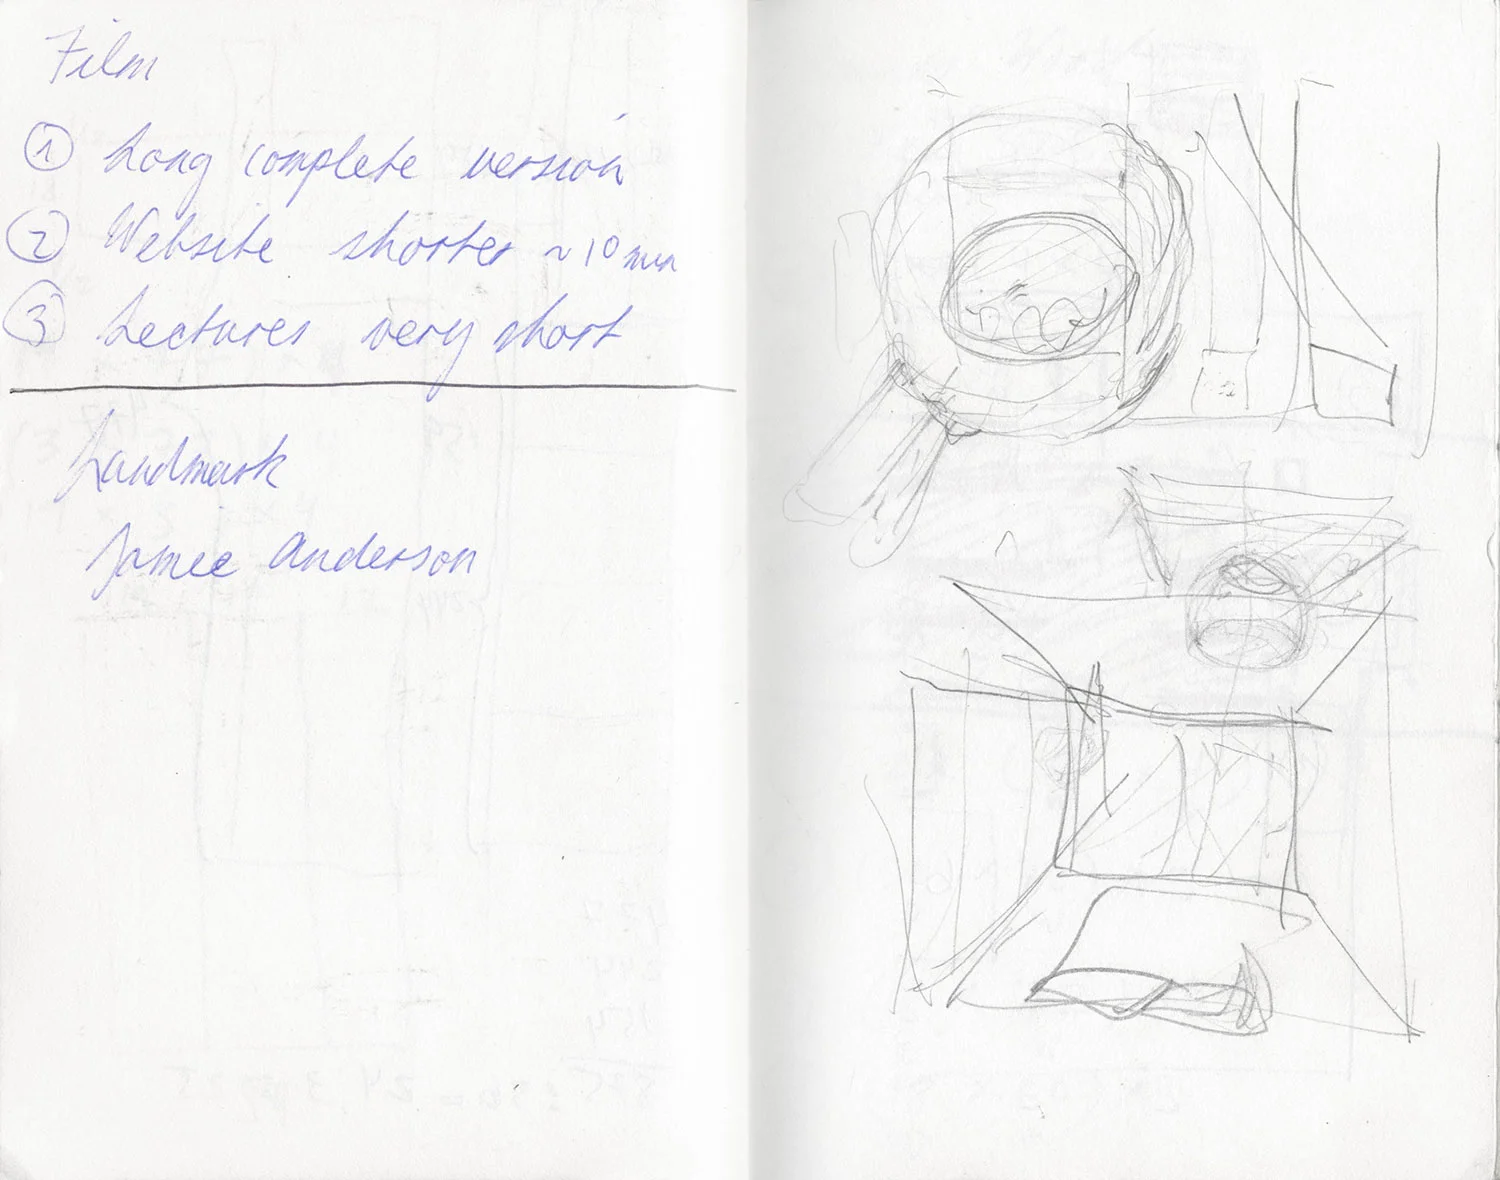 Film
① Long complete version
② Website shorter ~ 10 min
③ Lectures very short
Landmark
Jamie Anderson